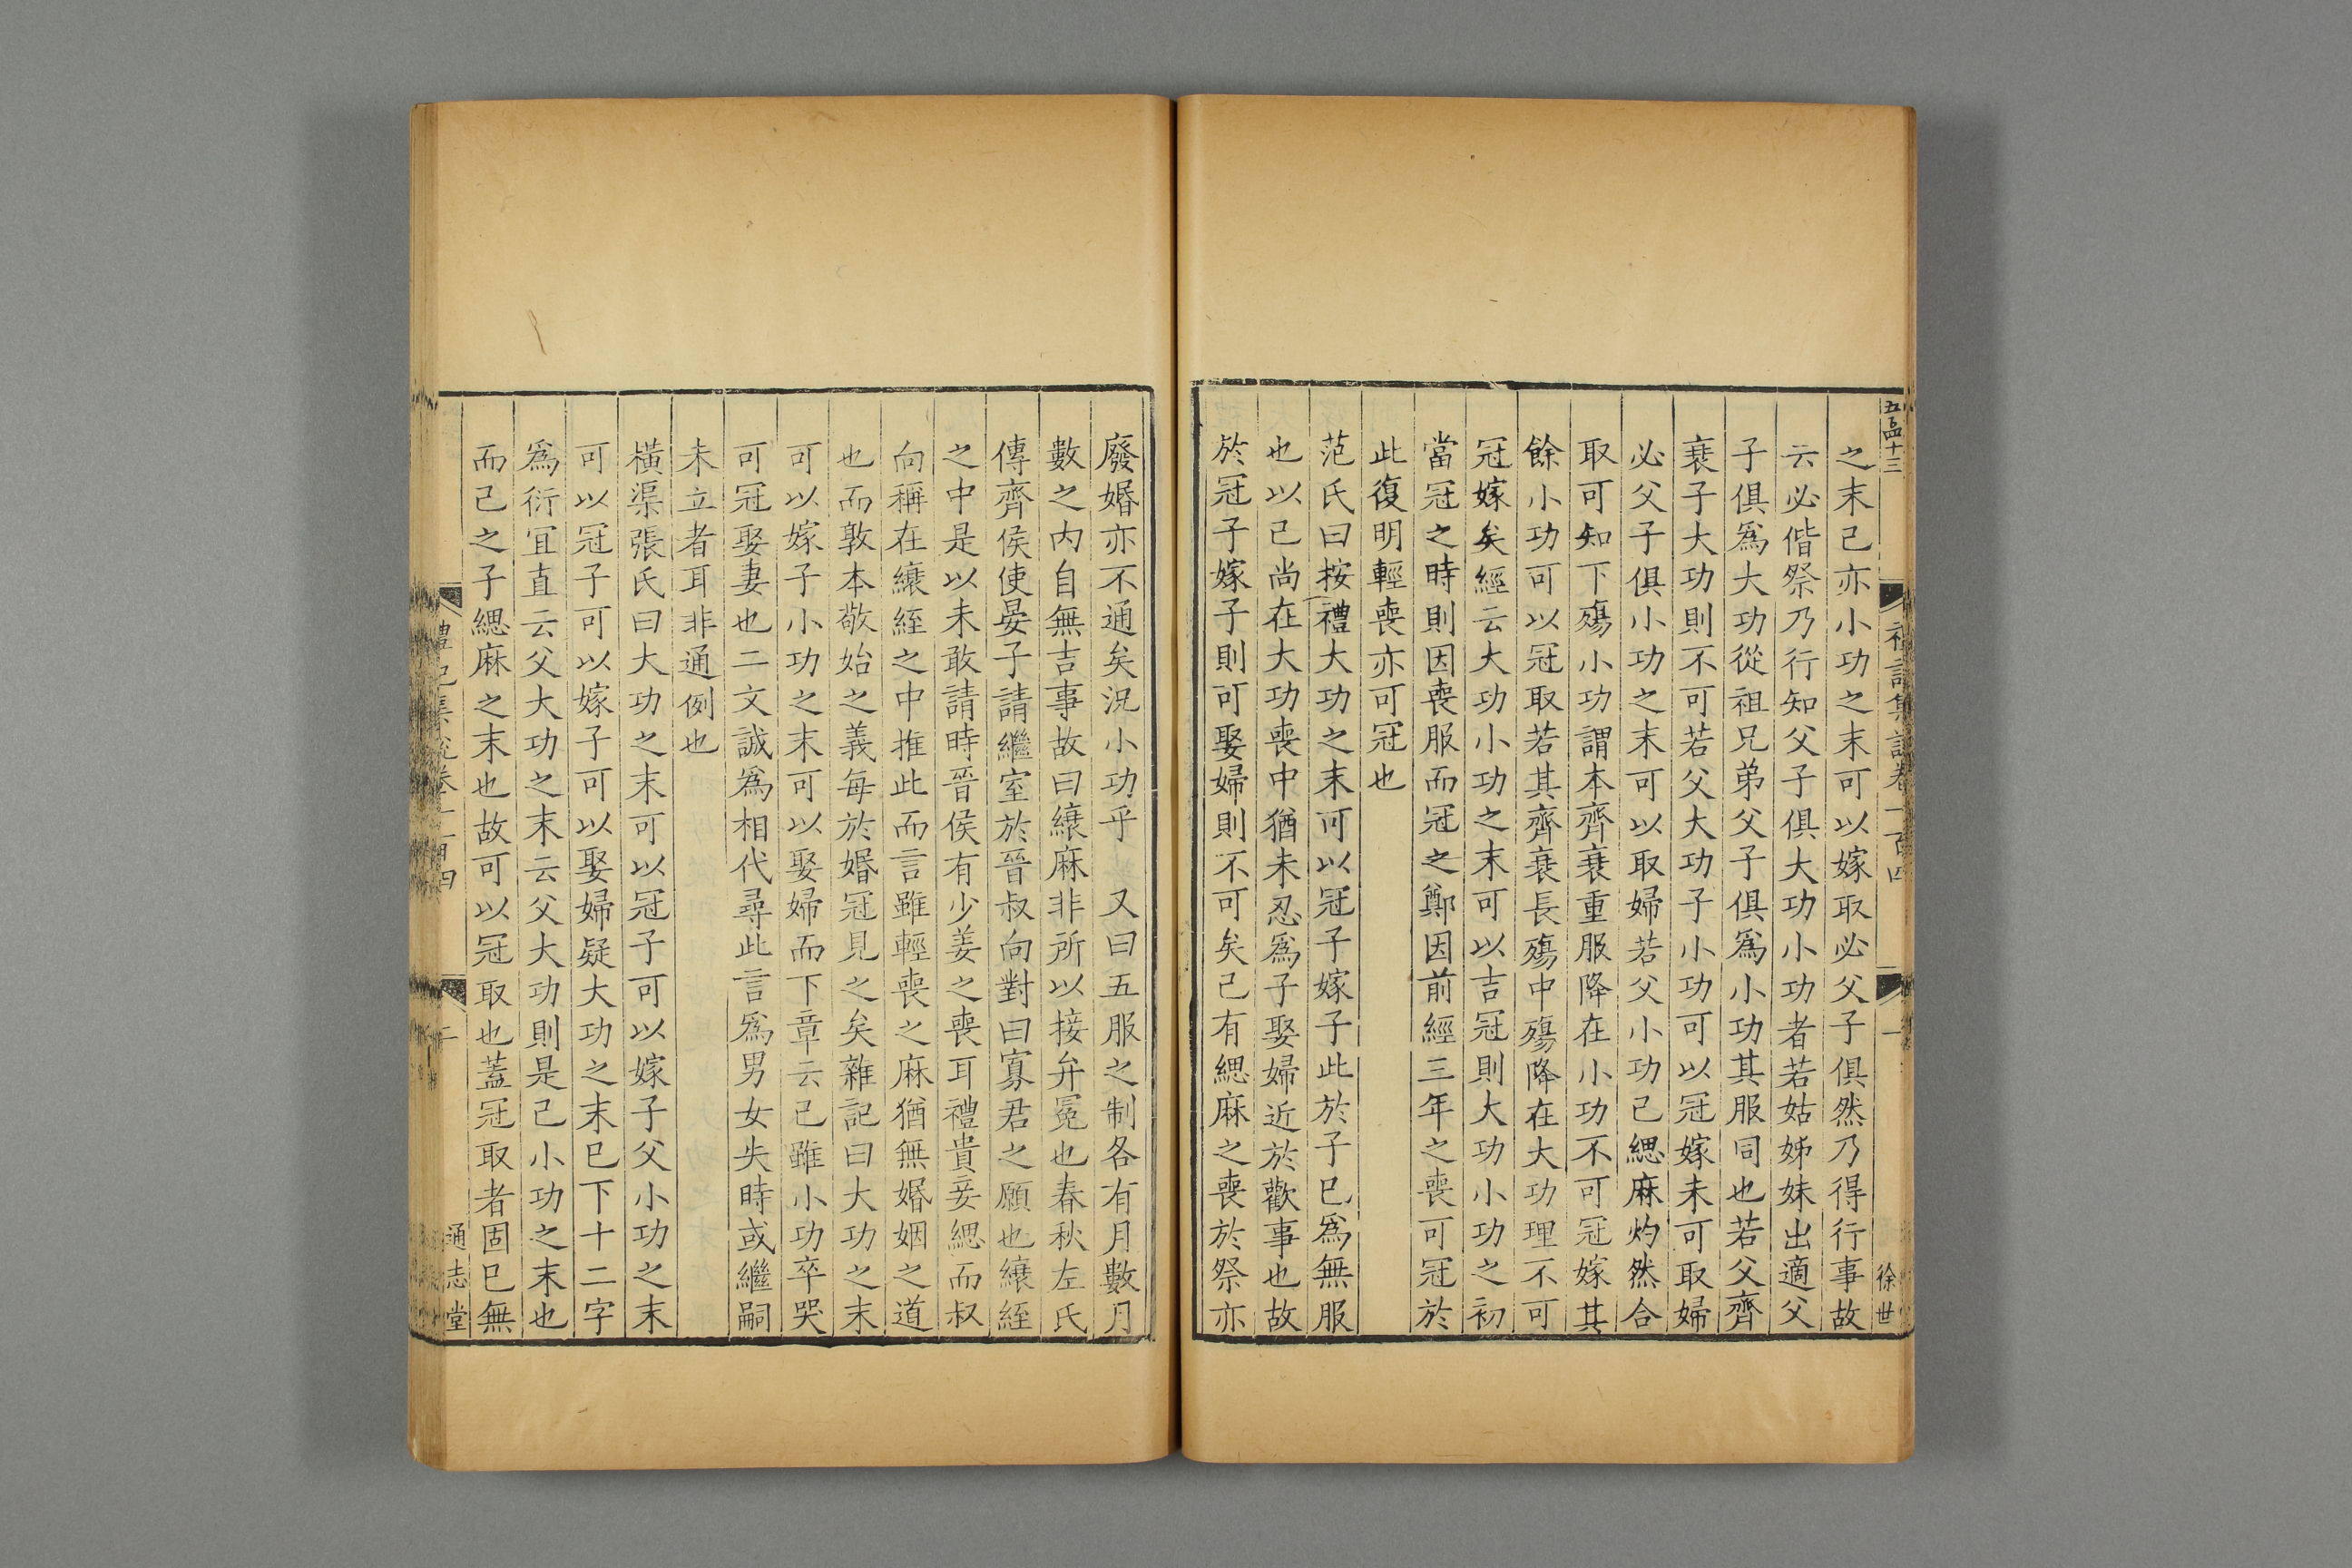 五百十三
禮記集說卷一百四
一
徐世
之末己亦小功之末可以嫁取必父子俱然乃得行事故
云必偕祭乃行知父子俱大功小功者若姑姊妹出適父
子俱爲大功從祖兄弟父子俱爲小功其服同也若父齊
衰子大功則不可若父大功子小功可以冠嫁未可取婦
必父子俱小功之末可以取婦若父小功己緦麻灼然合
取可知下殤小功謂本齊衰重服降在小功不可冠嫁其
餘小功可以冠取若其齊衰長殤中殤降在大功理不可
冠嫁矣經云大功小功之末可以吉冠則大功小功之初
當冠之時則因喪服而冠之鄭因前經三年之喪可冠於
此復明輕喪亦可冠也
范氏曰按禮大功之末可以冠子嫁子此於子已爲無服
也以己尚在大功喪中猶未忍爲子娶婦近於歡事也故
於冠子嫁子則可娶婦則不可矣己有緦麻之喪於祭亦
廢婚亦不通矣況小功乎 又曰五服之制各有月數月
數之內自無吉事故曰縗麻非所以接弁冕也春秋左氏
傳齊侯使晏子請繼室於晉叔向對曰寡君之願也縗絰
之中是以未敢請時晉侯有少姜之喪耳禮貴妾緦而叔
向稱在縗絰之中推此而言雖輕喪之麻猶無婚姻之道
也而敦本敬始之義每於婚冠見之矣雜記曰大功之末
可以嫁子小功之末可以娶婦而下章云己雖小功卒哭
可冠娶妻也二文誠爲相代尋此言爲男女失時或繼嗣
未立者耳非通例也
橫渠張氏曰大功之末可以冠子可以嫁子父小功之末
可以冠子可以嫁子可以娶婦疑大功之末已下十二字
爲衍宜直云父大功之末云父大功則是己小功之末也
而己之子緦麻之末也故可以冠取也蓋冠取者固已無
禮記集說卷一百四
二
通志堂